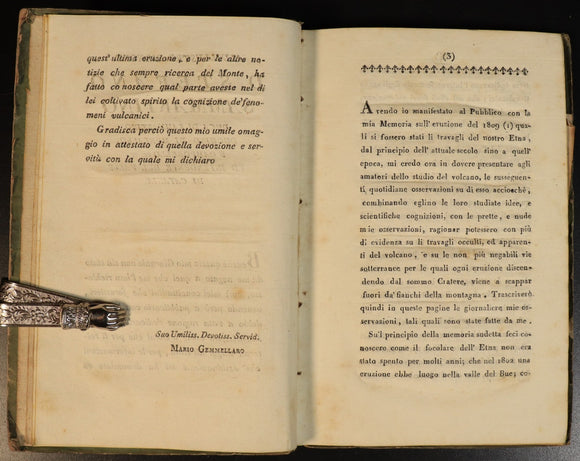 quest'ultima eruzione, e per le altre no-
tizie che sempre ricerca del Monte, ha
fatto conoscere qual parte avesse nel di
lei coltivato spirito la cognizione de'feno-
meni vulcanici.
Gradisca perciò questo mio umile omag-
gio in attestato di quella devozione e ser-
vitù con la quale mi dichiaro
Suo Umiliss. Devotiss. Servid.
Mario Gemmellaro
(3)
Avendo io manifestato al Pubblico con la
mia Memoria sull'eruzione del 1809 (1) qua-
li si fossero stati li travagli del nostro Etna,
dal principio dell'attuale secolo sino a quell'
epoca, mi credo ora in dovere presentare agli
amatori dello studio del volcano, le susseguen-
ti, quotidiane osservazioni su di esso acciocchè,
combinando eglino le loro studiate idee, e
scientifiche cognizioni, con le prette, e nude
mie osservazioni, ragionar potessero con più
di evidenza su li travagli occulti, ed apparen-
ti del volcano, e su le non più negabili vie
sotterranee per le quali ogni eruzione discen-
dendo dal sommo Cratere, viene a scappar
fuori da' fianchi della montagna. Trascriverò
quindi in queste pagine le giornaliere mie os-
servazioni, tali quali sono state fatte da me.
Su'l principio della memoria sudetta feci co-
noscere come il focolare dell'Etna non era
stato spento per molti anni; che nel 1802 una
eruzione ebbe luogo nella valle del Bue; co-